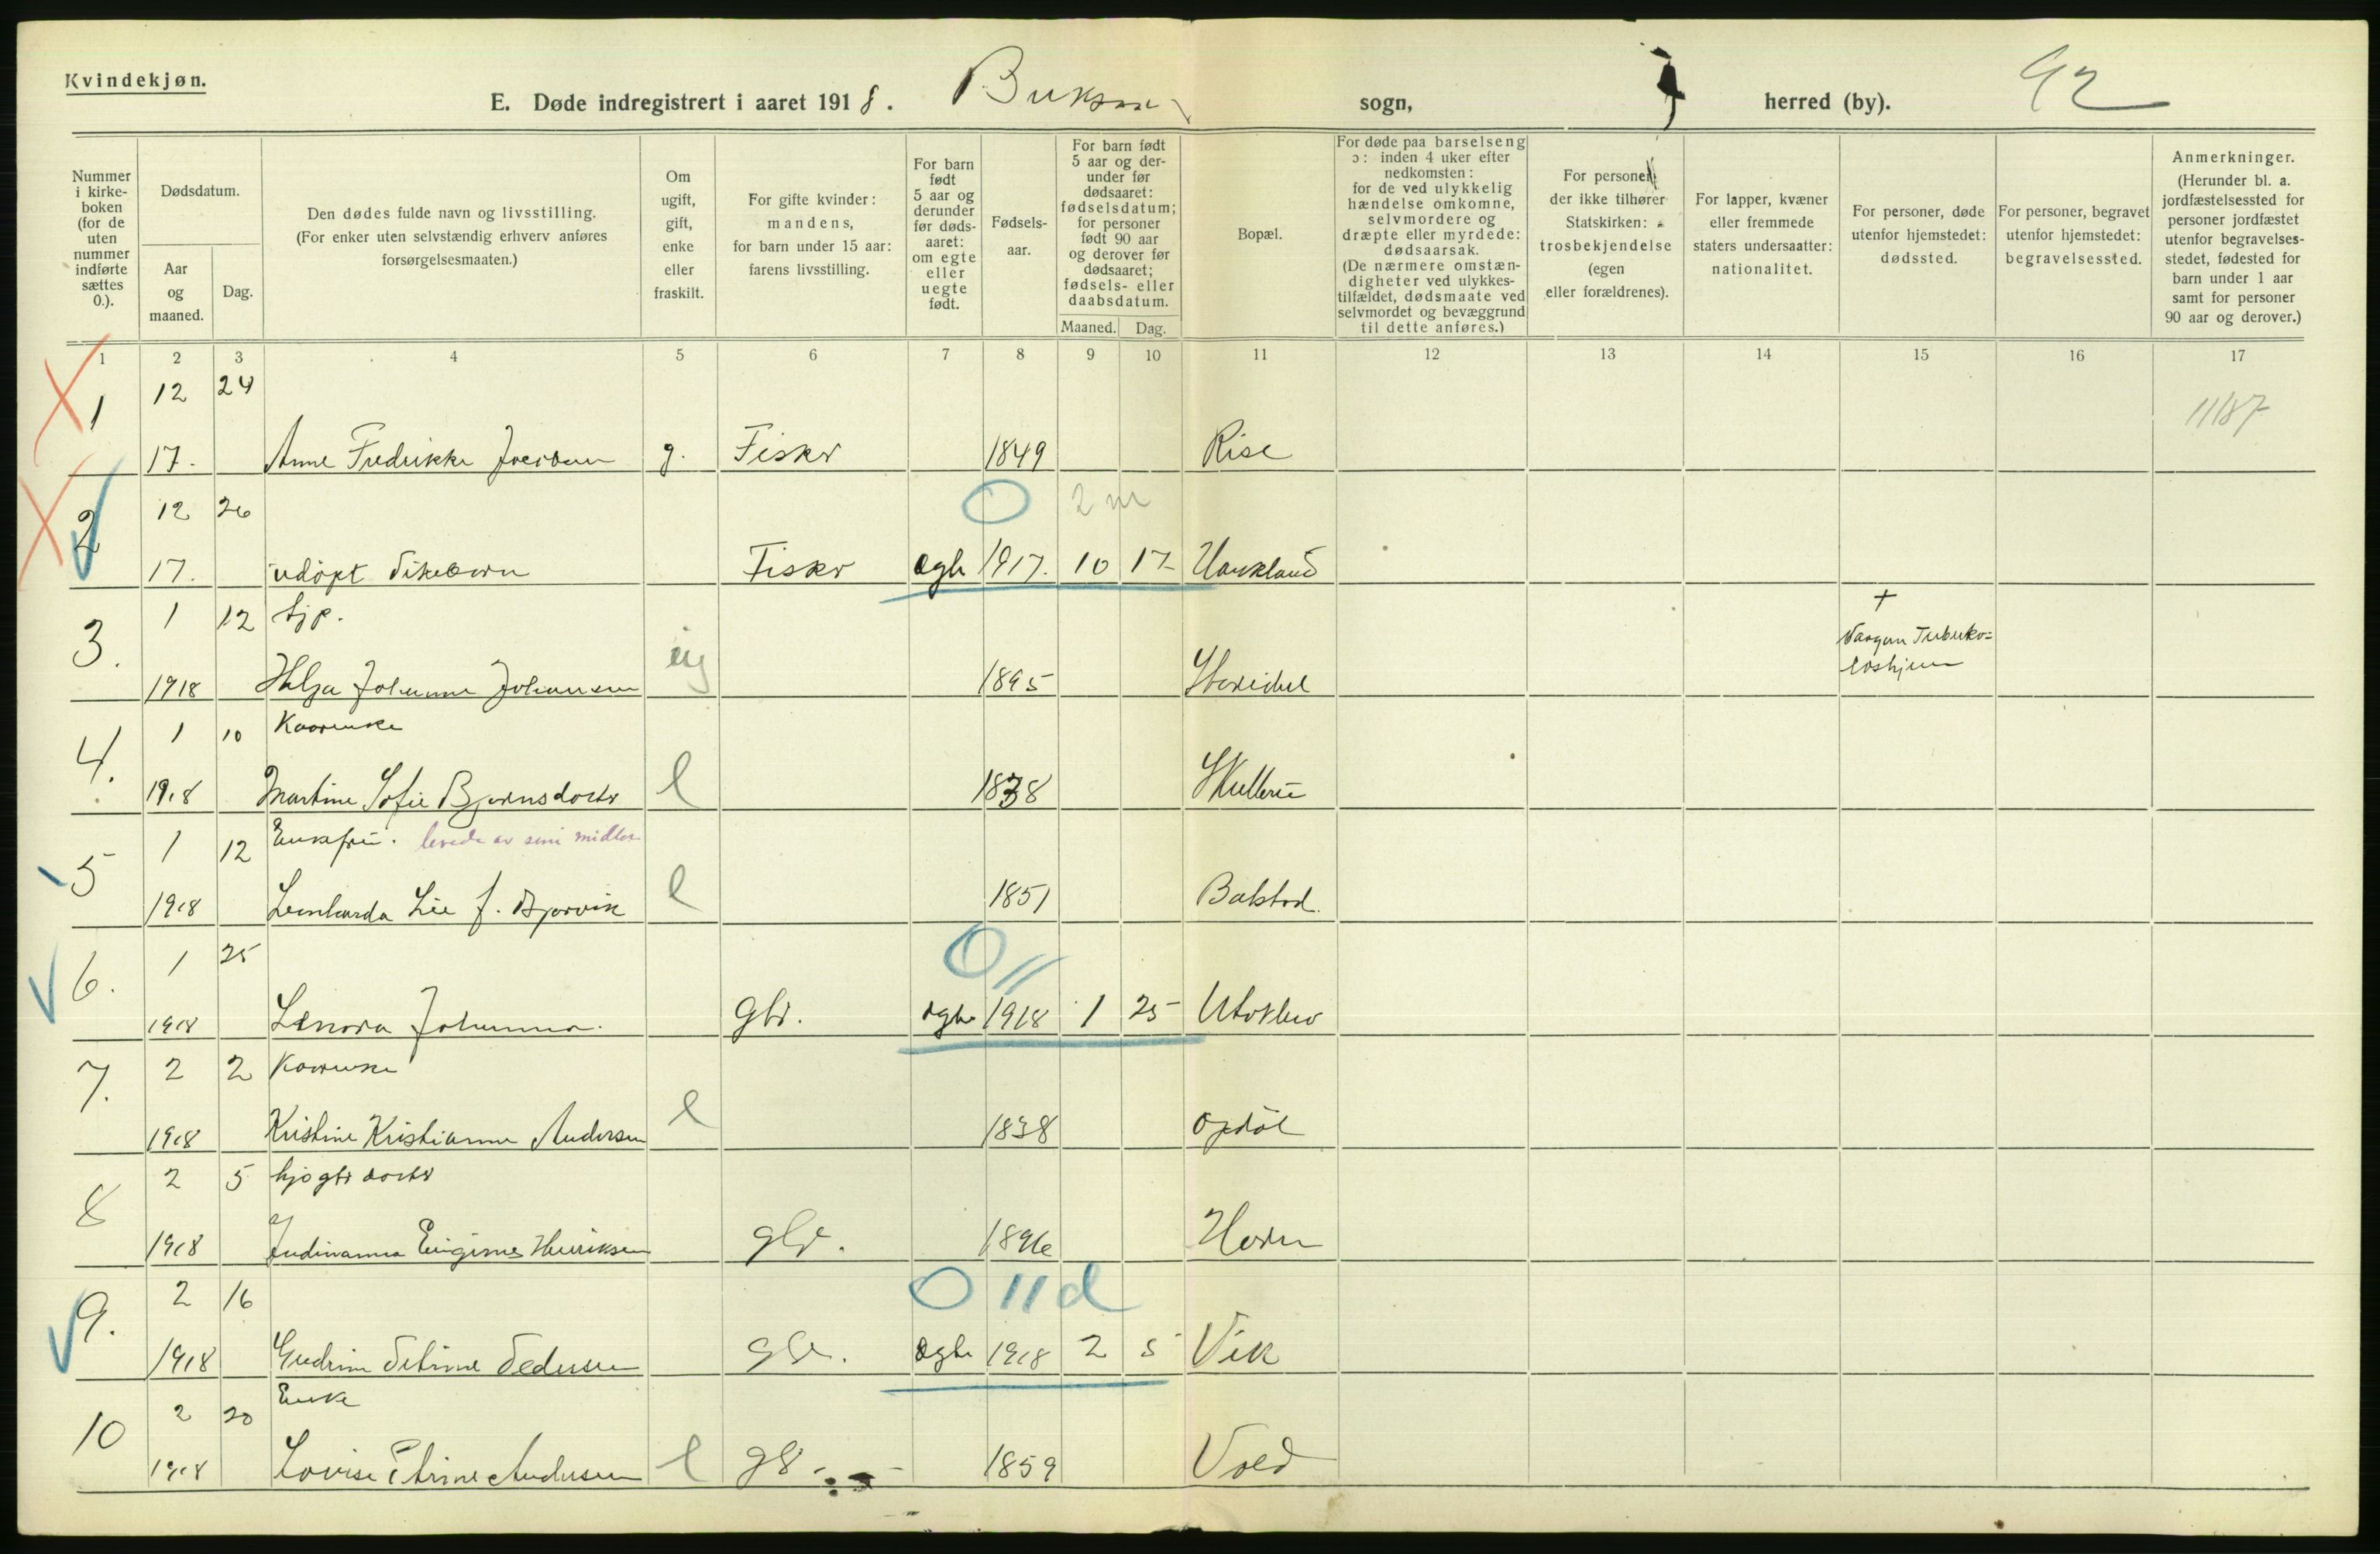 Kvindekjøn.
E. Døde indregistrert i aaret 1918. Buksn sogn, herred (by). 92
Nummer i kirke-boken (for de uten nummer indførte sættes 0.).
Dødsdatum.
Aar og maaned.
Dag.
Den dødes fulde navn og livsstilling.
(For enker uten selvstændig erhverv anføres
forsørgelsesmaaten.)
Om ugift, gift, enke eller fraskilt.
For gifte kvinder:
mandens,
for barn under 15 aar:
farens livsstilling.
For barn født 5 aar og derunder før døds-aaret: om egte eller uegte født.
Fødsels-aar.
For barn født 5 aar og der-under før dødsaaret: fødselsdatum; for personer født 90 aar og derover før dødsaaret; fødsels- eller daabsdatum.
Maaned. Dag.
Bopæl.
For døde paa barselseng
ɔ: inden 4 uker efter
nedkomsten:
for de ved ulykkelig
hændelse omkomne,
selvmordere og
dræpte eller myrdede:
dødsaarsak.
(De nærmere omstæn-
digheter ved ulykkes-
tilfældet, dødsmaate ved
selvmordet og bevæggrund
til dette anføres.)
For personer
der ikke tilhører
Statskirken:
trosbekjendelse
(egen
eller forældrenes).
For lapper, kvæner
eller fremmede
staters undersaatter:
nationalitet.
For personer, døde
utenfor hjemstedet:
dødssted.
For personer, begravet
utenfor hjemstedet:
begravelsessted.
Anmerkninger.
(Herunder bl. a.
jordfæstelsessted for
personer jordfæstet
utenfor begravelses-
stedet, fødested for
barn under 1 aar
samt for personer
90 aar og derover.)
1 2 3 4 5 6 7 8 9 10 11 12 13 14 15 16 17
1 12 24
17. Anne Fredrikke g. Fisker 1849 Rise 11187
2 12 26 0 2 m
17. udöpt Fisker egte 1917. 10 17 Haukland
3. 1 12 tjp.
1918 Helga Johanne Johansen ug 1895
+
Tuberku=
loshjem
4. 1 10 Kaarenke
1918 Martine Sofie Bjørnsdatter e 1838
5 1 12 Enkefru. levede av sine midler
1918 Leonharda Lie f. Bjørvik e 1851 Balstad.
6. 1 25 0
1918 Lenora Johanna. gbr. egte 1918 1 25
7. 2 2 Kaarenke
1918 Kristine Kristianne Andersen e 1838 Opdöl
8 2 5
1918 Henriksen gbr. 1896 Horn
9. 2 16 0 11 d
1918 Gudrun Petrine Pedersen gbr. egte 1918 2 5 Vik
10 2 20 Enke
1918 Lovise Petrine Andersen e 1859 Vold